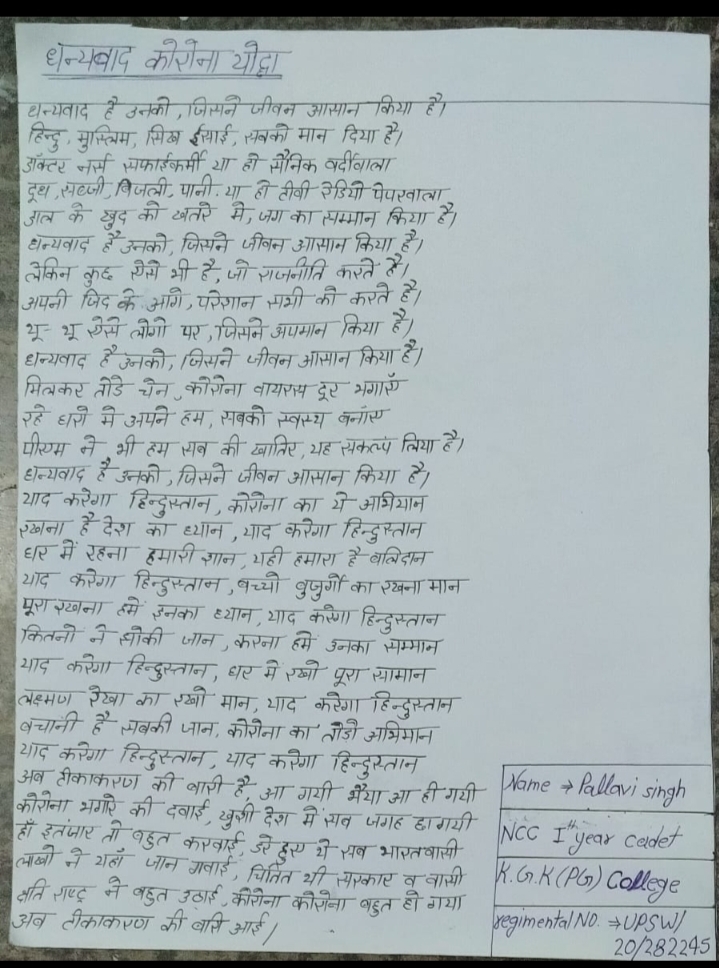 धन्यबाद कोरोना योद्धा
धन्यवाद है उनको, जिसने जीवन आसान किया है।
हिन्दु, मुस्लिम, सिख ईसाई, सबको मान दिया है।
डॉक्टर नर्स सफाईकर्मी या हो सैनिक वर्दीवाला
दूध, सब्जी, बिजली, पानी, या हो टीवी रेडियो पेपरवाला
डाल के खुद को खतरे मे, जग का सम्मान किया है।
धन्यवाद है उनको, जिसने जीवन आसान किया है।
लेकिन कुछ ऐसे भी है, जो राजनीति करते है।
अपनी जिद के आगे, परेशान सभी को करते है।
थू-थू ऐसे लोगो पर, जिसने अपमान किया है।
धन्यवाद है उनको, जिसने जीवन आसान किया है।
मिलकर तोडे चेन, कोरोना वायरस दूर भगाएँ
रहे घरो मे अपने हम, सबको स्वस्थ बनाए
पीएम ने भी हम सब की खातिर, यह सकल्प लिया है।
धन्यवाद है उनको, जिसने जीवन आसान किया है।
याद करेगा हिन्दुस्तान, कोरोना का ये अभियान
रखना है देश का ध्यान, याद करेगा हिन्दुस्तान
घर में रहना हमारी शान, यही हमारा है बलिदान
याद करेगा हिन्दुस्तान, बच्चो बुजुर्गो का रखना मान
पूरा रखना हमें इनका ध्यान, याद करेगा हिन्दुस्तान
कितनो ने झोकी जान, करना हमें उनका सम्मान
याद करेगा हिन्दुस्तान, घर में रखो पूरा सामान
लक्ष्मण रेखा का रखो मान, याद करेगा हिन्दुस्तान
बचानी है सबकी जान, कोरोना का तोडो अभिमान
याद करेगा हिन्दुस्तान, याद करेगा हिन्दुस्तान
अब टीकाकरण की बारी है, आ गयी भैया आ ही गयी
कोरोना भगारे की दवाई, खुशी देश में सब जगह छा गयी
हाँ इतंजार तो बहुत करवाई, डरे हुए थे सब भारतवासी
लाखो ने यहाँ जान गवाई, चितित थी सरकार व वासी
क्षति राष्ट्र ने बहुत उठाई, कोरोना कोरोना बहुत हो गया
अब टीकाकरण की बारि आई।
Name → Pallavi singh
NCC Ith year cadet
K.G.K (PG) College
regimental NO. → UPSW/
20/282245